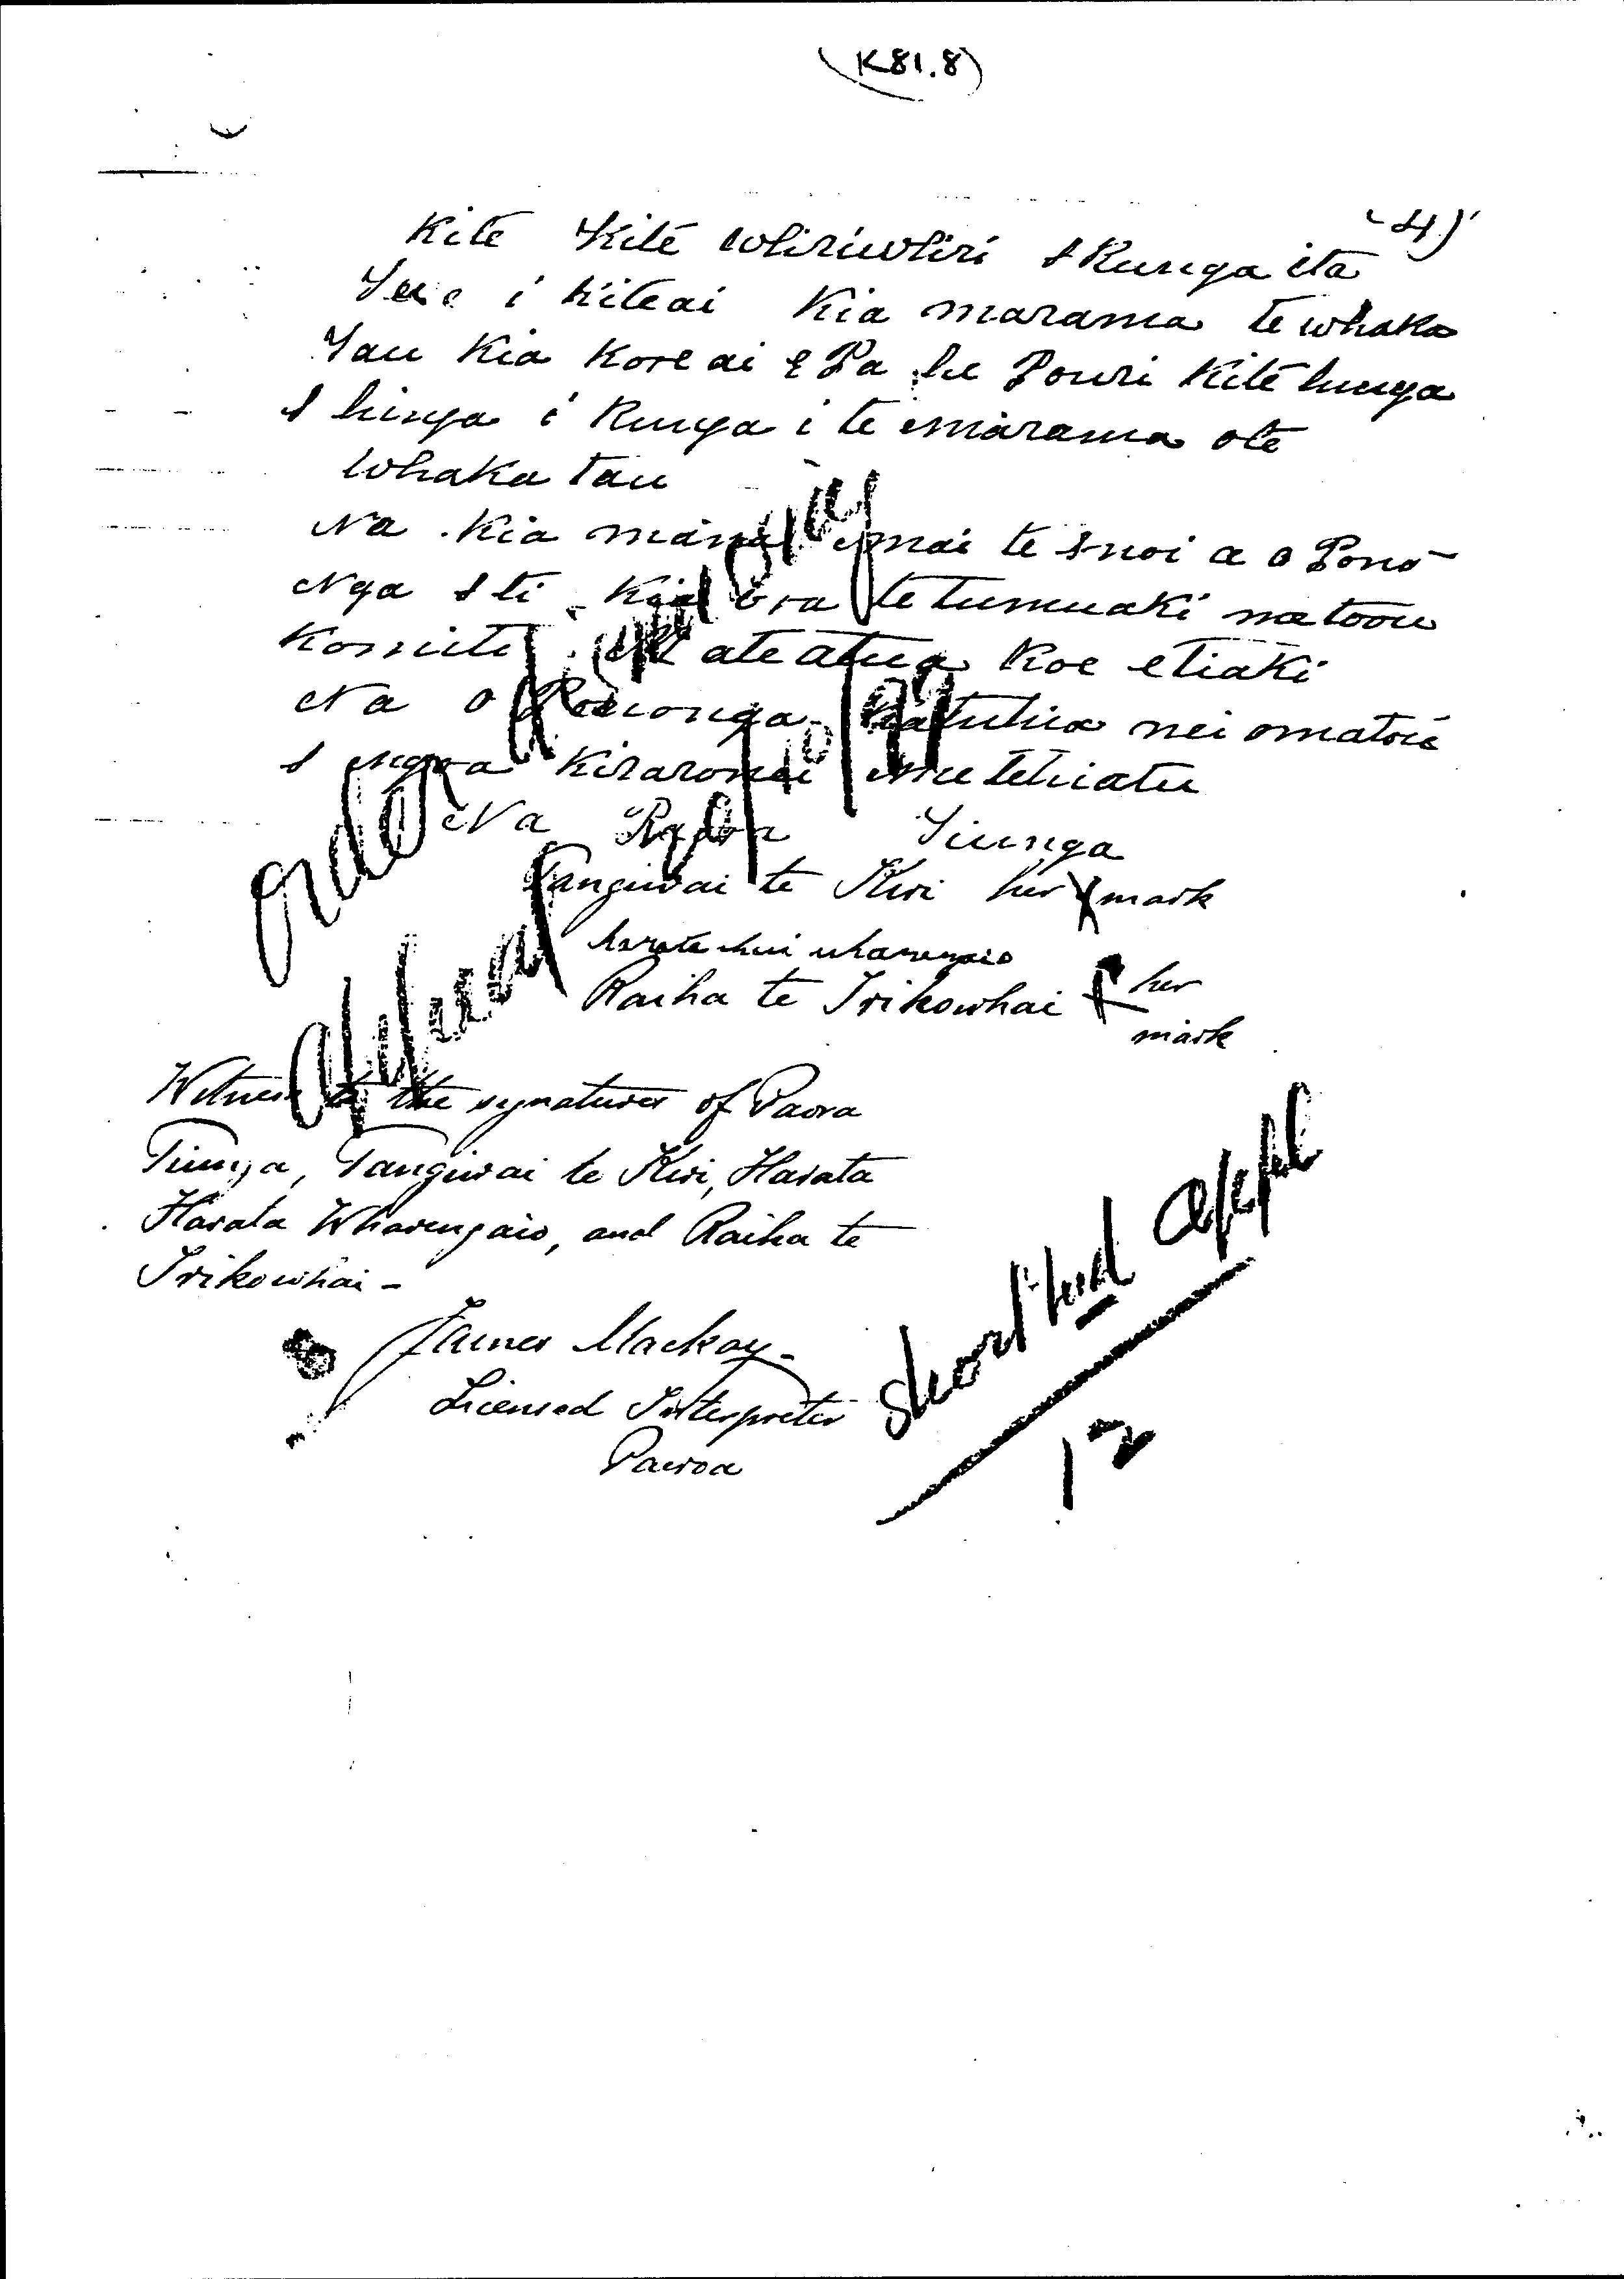 (K81.8)
(4)
Kite Kite whiriwhiri I Runga ita
i kiteai Kia marama te whaka
Tau Kia Kore ai e Pa he Pouri Kite hunga
I hinga i Runga i te marama ote
Whaka tau
Na . Kia mana mai te Inoi a o Pono
Nga Iti . Kia ora te tumuaki me toou
Komiti . ateatua Koe etiaki
Na o Pononga. Katuhia nei omatou
I ngoa Kiraronei
Na Paora Tiunga
Tangiwai te Kiri her X mark
harata hui wharengaio
Raiha te Irikowhai X her
mark
Witness to the signatures of Paora
Tiunga, Tangiwai te Kiri, Harata
Harata Wharengaio, and Raiha te
Irikowhai -
James Mackay -
Licensed Interpreter
Paeroa
/10/99
12